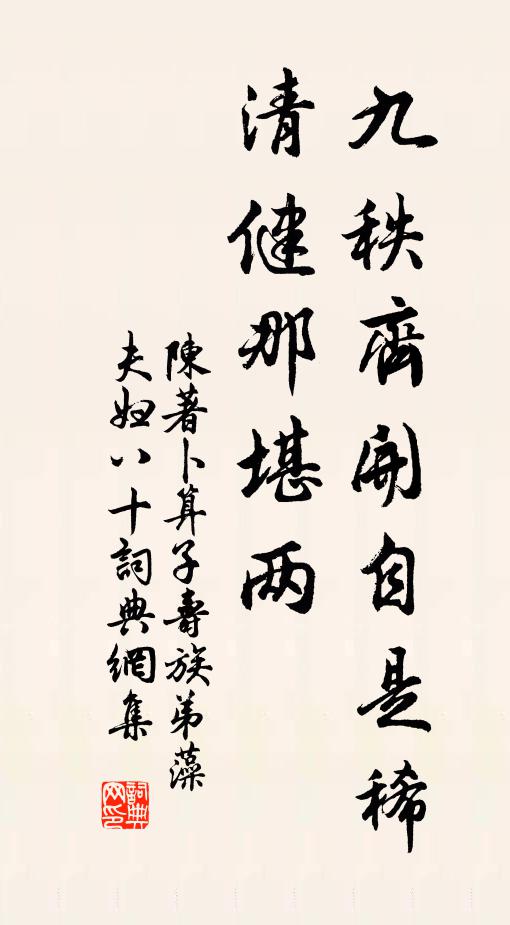 九秩齊開自是稀
清健那堪两
陳著卜算子壽族弟藻
夫妇八十詞典網集
詞典
网印